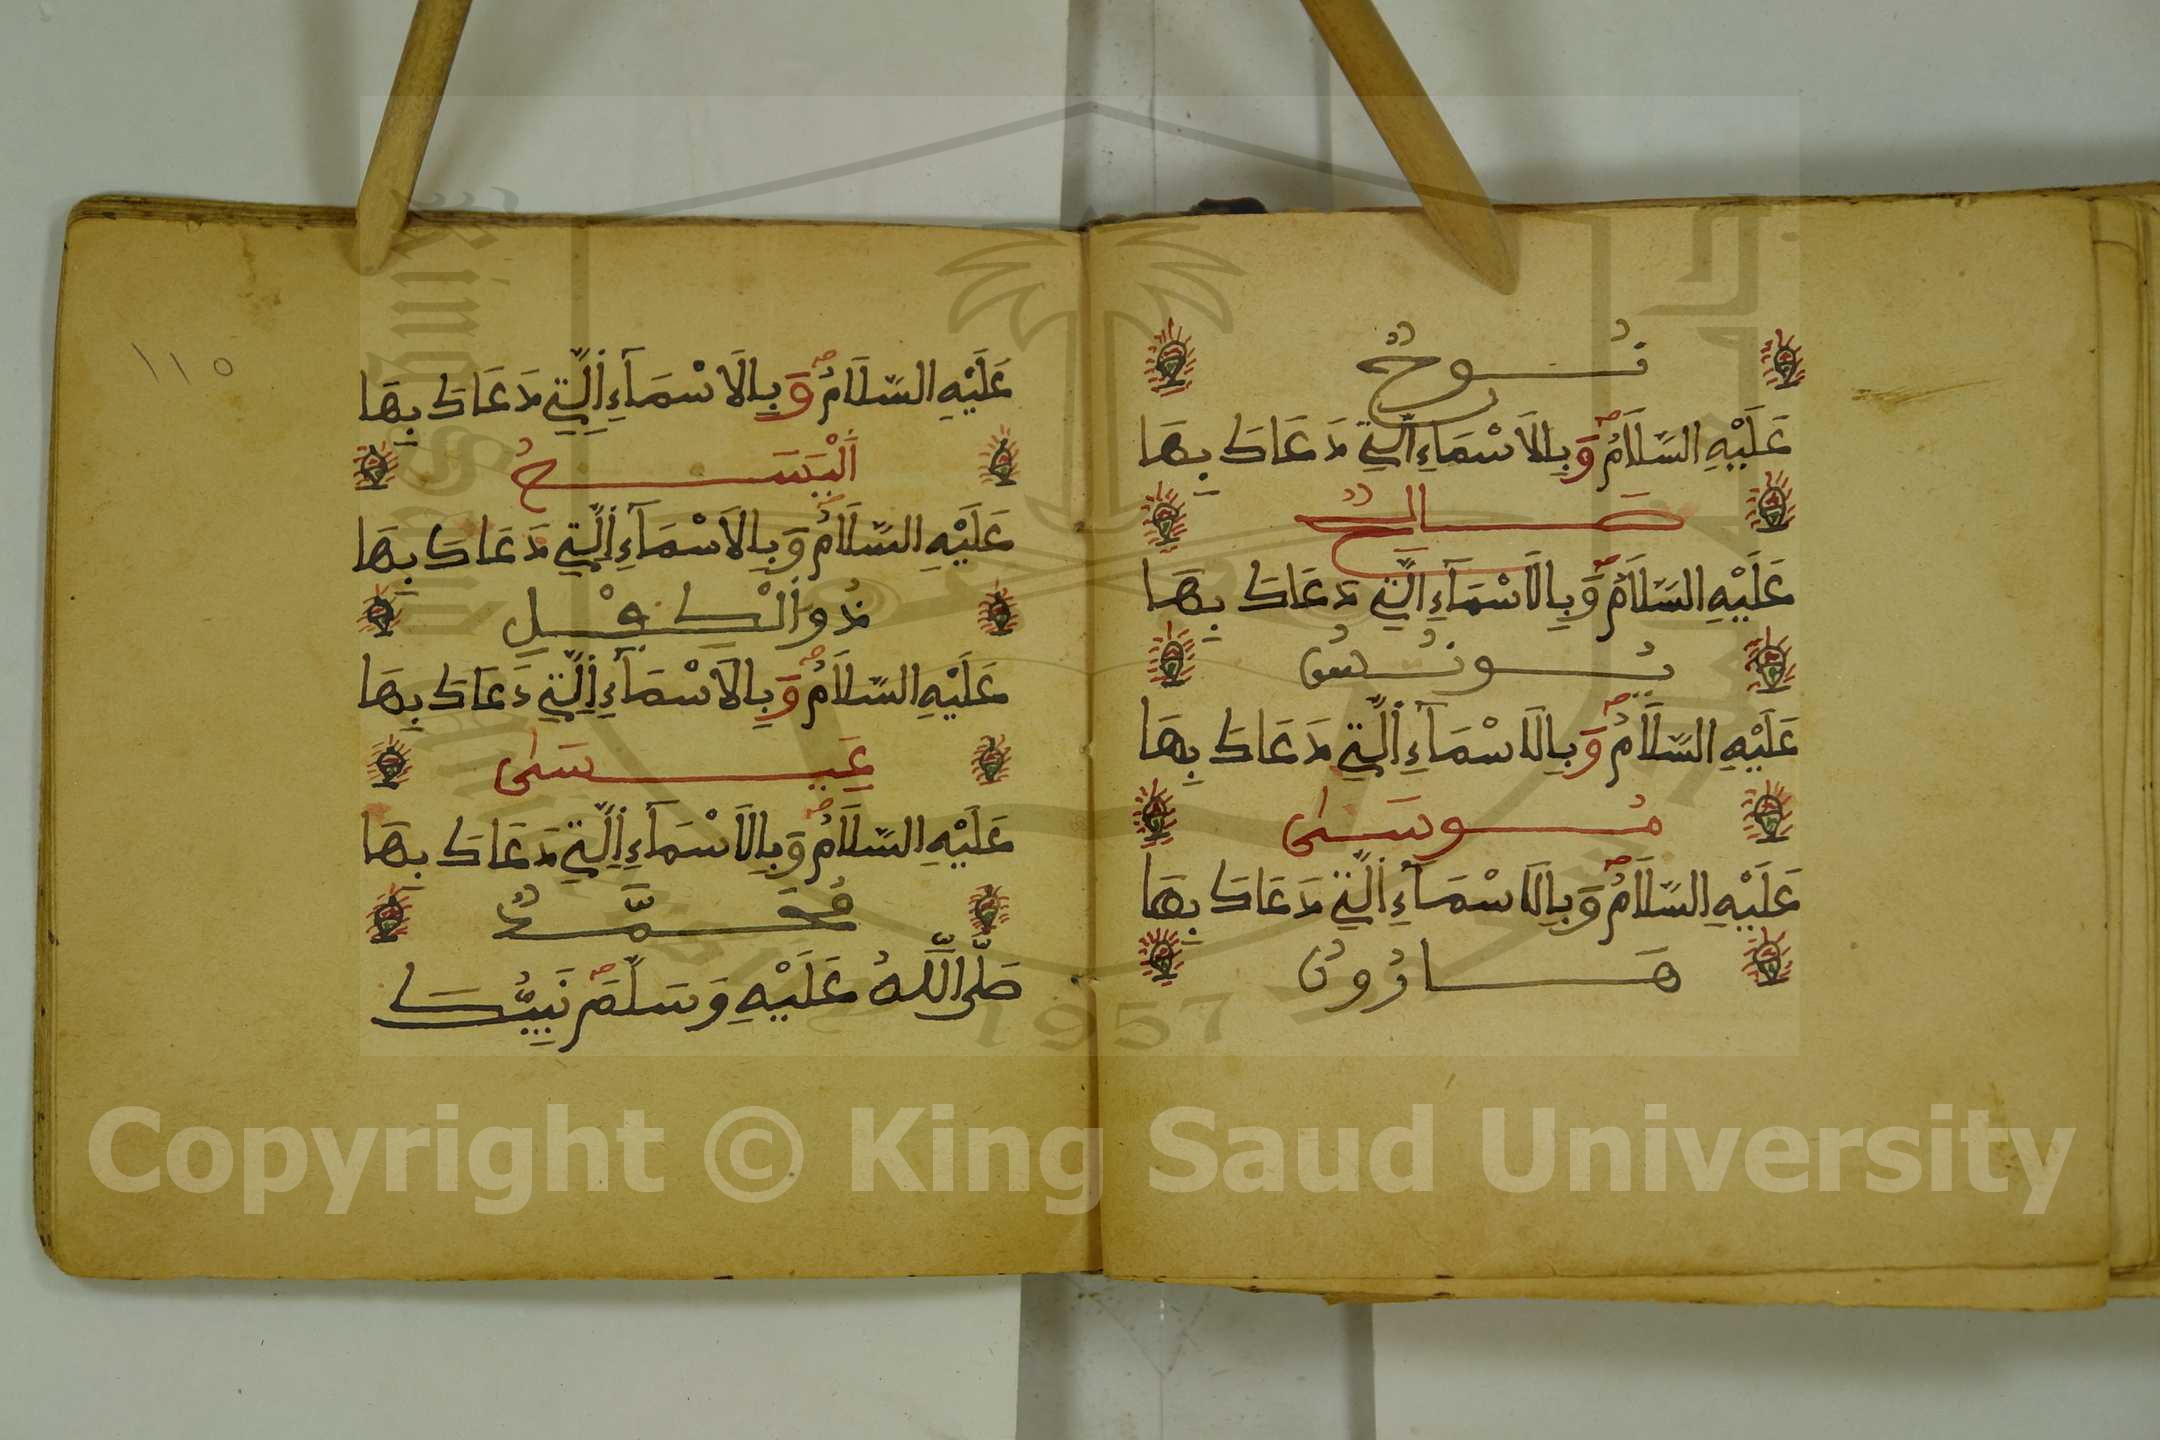 نُوحٌ
عَلَيْهِ السَّلَامُ وَبِالَاسْمَاءِ الَّتِي دَعَاكَ بِهَا
صَالِحٌ
عَلَيْهِ السَّلَامُ وَبِالَاسْمَآءِ الَّتِي دَعَاكَ بِهَا
يُونُسُ
عَلَيْهِ السَّلَامُ وَبِالَاسْمَآءِ الَّتِي دَعَاكَ بِهَا
مُوسَىٰ
عَلَيْهِ السَّلَامُ وَبِالَاسْمَآءِ الَّتِي دَعَاكَ بِهَا
هَارُونُ
١١٥
عَلَيْهِ السَّلَامُ وَبِالَاسْمَآءِ الَّتِي دَعَاكَ بِهَا
اَلْيَسَعُ
عَلَيْهِ السَّلَامُ وَبِالَاسْمَآءِ الَّتِي دَعَاكَ بِهَا
ذُو الْكِفْلِ
عَلَيْهِ السَّلَامُ وَبِالَاسْمَآءِ الَّتِي دَعَاكَ بِهَا
عِيسَىٰ
عَلَيْهِ السَّلَامُ وَبِالَاسْمَآءِ الَّتِي دَعَاكَ بِهَا
مُحَمَّدٌ
صَلَّى اللَّهُ عَلَيْهِ وَسَلَّمَ نَبِيُّكَ
1957
Copyright © King Saud University